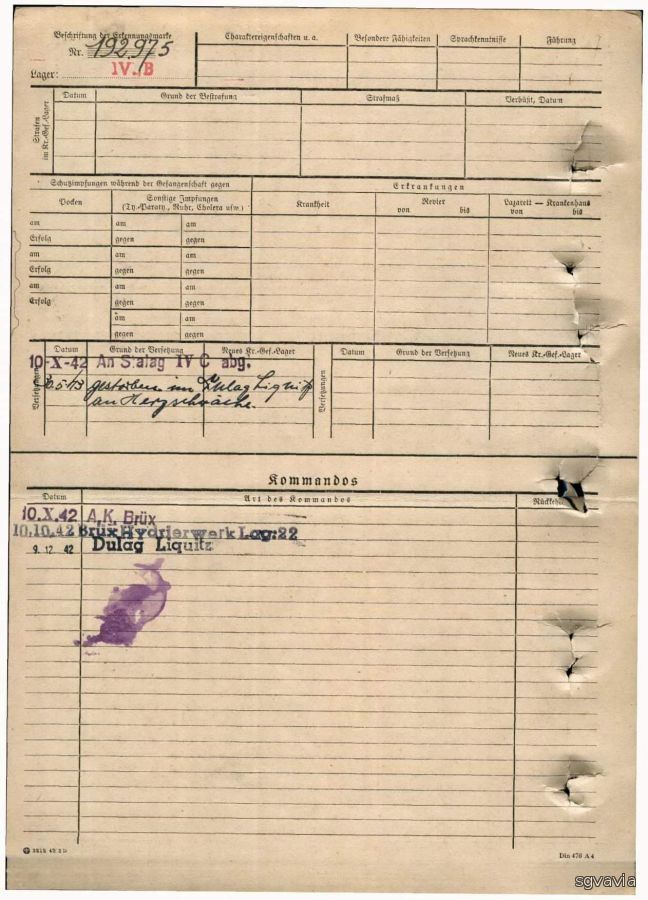 Beschriftung der Erkennungsmarke
Nr. 192.975
Lager: IV. B
Charaktereigenschaften u. a.
Besondere Fähigkeiten
Sprachkenntnisse
Führung
Strafen im Kr.-Gef.-Lager
Datum
Grund der Bestrafung
Strafmaß
Verbüßt, Datum
Schutzimpfungen während der Gefangenschaft gegen
Erkrankungen
Pocken
Sonstige Impfungen
(Ty.-Paraty., Ruhr, Cholera usw.)
Krankheit
Revier
von bis
Lazarett — Krankenhaus
von bis
am am am
Erfolg gegen gegen
am am am
Erfolg gegen gegen
am am am
Erfolg gegen gegen
am am
gegen gegen
Versetzungen
Datum
Grund der Versetzung
Neues Kr.-Gef.-Lager
Versetzungen
Datum
Grund der Versetzung
Neues Kr.-Gef.-Lager
10-X-42 An Stalag IV C abg.
gestorben im Dulag Liquitz
an Herzschwäche.
Kommandos
Datum
Art des Kommandos
10.X.42 A.K. Brüx
10.10.42 Brüx Hydrierwerk Lag:22
9. 12. 42 Dulag Liquitz
3812 42 2 D
Din 476 A 4
sgvavia